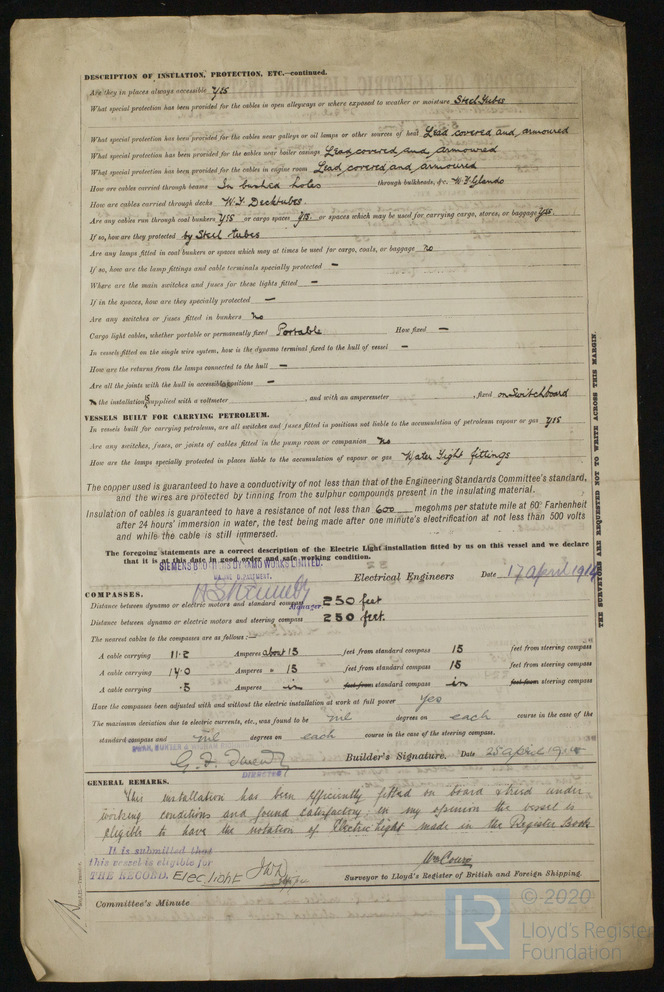 DESCRIPTION OF INSULATION, PROTECTION, ETC.—continued.
Are they in places always accessible yes
What special protection has been provided for the cables in open alleyways or where exposed to weather or moisture Steel tubes
What special protection has been provided for the cables near galleys or oil lamps or other sources of heat Lead covered and armoured
What special protection has been provided for the cables near boiler casings Lead covered and armoured
What special protection has been provided for the cables in engine room Lead covered and armoured
How are cables carried through beams In bushed holes through bulkheads, &c. W.T. Glands
How are cables carried through decks W.T. Decktubes.
Are any cables run through coal bunkers yes or cargo spaces yes or spaces which may be used for carrying cargo, stores, or baggage yes.
If so, how are they protected by Steel tubes
Are any lamps fitted in coal bunkers or spaces which may at times be used for cargo, coals, or baggage no
If so, how are the lamp fittings and cable terminals specially protected —
Where are the main switches and fuses for these lights fitted —
If in the spaces, how are they specially protected —
Are any switches or fuses fitted in bunkers no
Cargo light cables, whether portable or permanently fixed Portable How fixed —
In vessels fitted on the single wire system, how is the dynamo terminal fixed to the hull of vessel —
How are the returns from the lamps connected to the hull —
Are all the joints with the hull in accessible positions —
Is the installation supplied with a voltmeter , and with an amperemeter , fixed on Switchboard
VESSELS BUILT FOR CARRYING PETROLEUM.
In vessels built for carrying petroleum, are all switches and fuses fitted in positions not liable to the accumulation of petroleum vapour or gas yes
Are any switches, fuses, or joints of cables fitted in the pump room or companion no
How are the lamps specially protected in places liable to the accumulation of vapour or gas Water Tight fittings
The copper used is guaranteed to have a conductivity of not less than that of the Engineering Standards Committee's standard,
and the wires are protected by tinning from the sulphur compounds present in the insulating material.
Insulation of cables is guaranteed to have a resistance of not less than 600 megohms per statute mile at 60° Farhenheit
after 24 hours' immersion in water, the test being made after one minute's electrification at not less than 500 volts
and while the cable is still immersed.
The foregoing statements are a correct description of the Electric Light installation fitted by us on this vessel and we declare
that it is at this date in good order and safe working condition.
SIEMENS BROTHERS DYNAMO WORKS LIMITED.
MARINE DEPARTMENT.
Electrical Engineers Date 17 April 1914
Manager
COMPASSES.
Distance between dynamo or electric motors and standard compass 250 feet
Distance between dynamo or electric motors and steering compass 250 feet.
The nearest cables to the compasses are as follows:—
A cable carrying 11.2 Amperes about 15 feet from standard compass 15 feet from steering compass
A cable carrying 14.0 Amperes " 15 feet from standard compass 15 feet from steering compass
A cable carrying .5 Amperes in feet from standard compass in feet from steering compass
Have the compasses been adjusted with and without the electric installation at work at full power Yes
The maximum deviation due to electric currents, etc., was found to be nil degrees on each course in the case of the
standard compass and nil degrees on each course in the case of the steering compass.
DIRECTOR Builder's Signature. Date 25 April 1914
GENERAL REMARKS.
This installation has been efficiently fitted on board & tried under
working conditions and found satisfactory, in my opinion the vessel is
eligible to have the notation of Electric Light made in the Register Book
It is submitted that
this vessel is eligible for
THE RECORD. Elec light JWD
Surveyor to Lloyd's Register of British and Foreign Shipping.
Committee's Minute
THE SURVEYORS ARE REQUESTED NOT TO WRITE ACROSS THIS MARGIN.
© 2020
LR
Lloyd's Register
Foundation